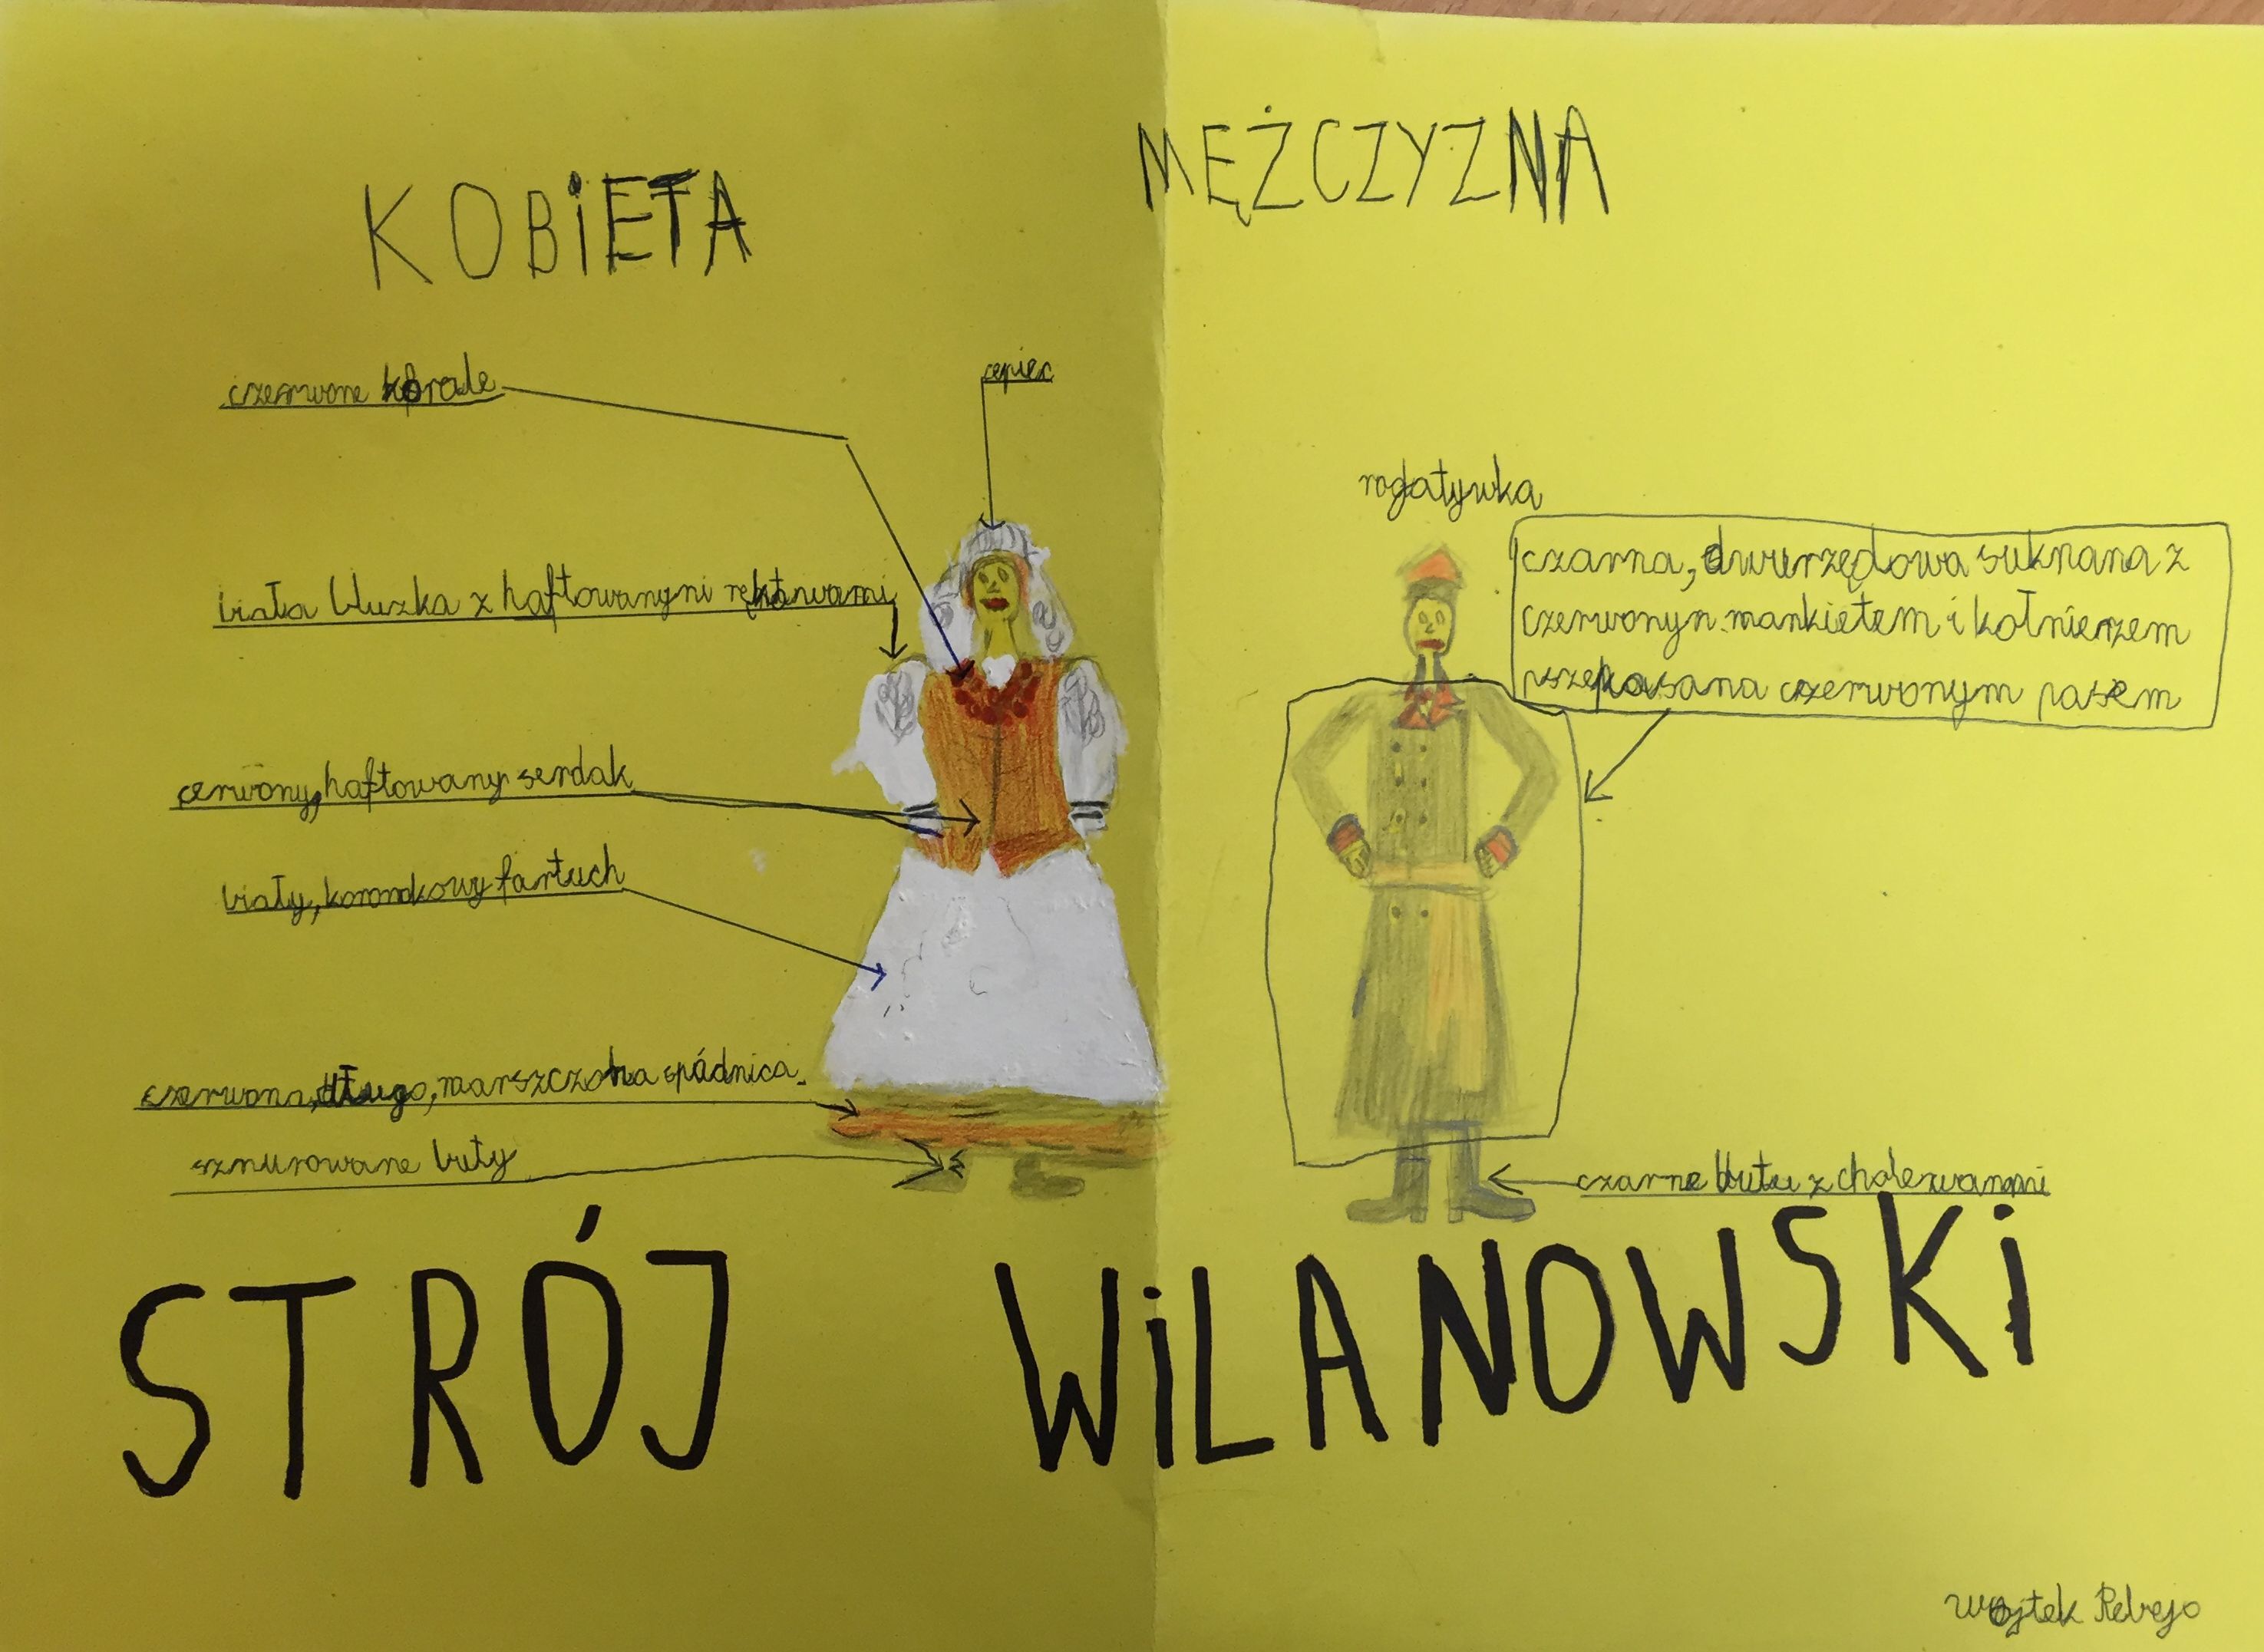 KOBiETA
MĘŻCZYZNA
czerwone korale
cepiec
biała bluzka z haftowanymi rękawami
cerwony, haftowany serdak
biały, koronkowy fartuch
czerwona, długo, marszczona spódnica.
sznurowane buty
rogatywka
czarna, dwurzędowa suknana z
czerwonyn mankietem i kołnierzem
pszepasana czerwonym pasem
czarne buty z cholewanmi
STRÓJ WiLANOWSKi
Wojtek Rebejo